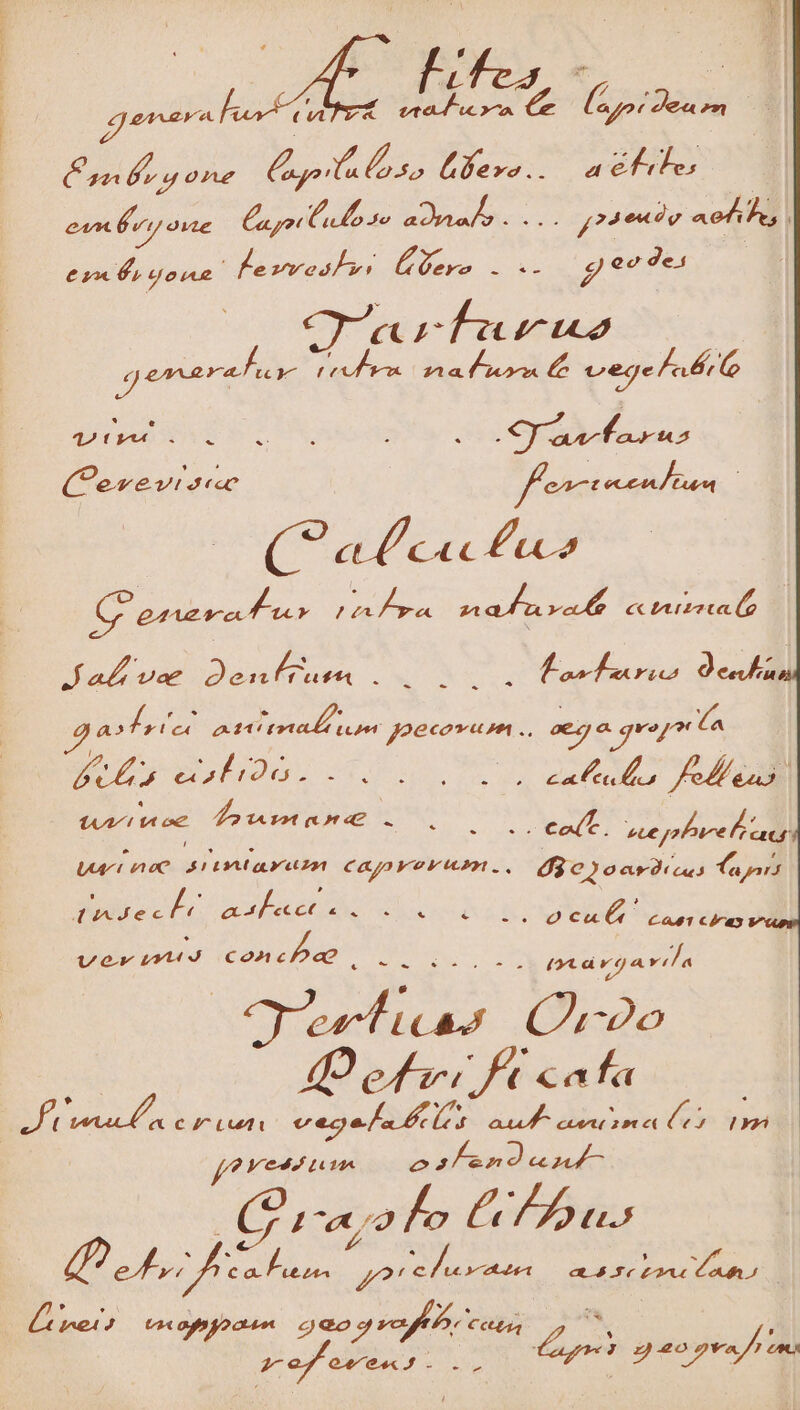 Ætites
generatur intra naturale lapideum
Embryone lapiduloso libero.. aëtites
embryone lapiduloso adnato. ... pseudo aetites
embryone terrestri libero - .. geodes
Tartarus
generatur intra naturale vegetabile
vini . . . . . . Tartarus
Cerevisiæ fermentum
Calculus
Generatur intra naturale animale
Salivæ dentium . . . . . tartarus dentium
gastrici animalium pecorum .. ægagropila
bilis . . . . . . . calculus felleus
urinæ humanæ . . . .. calc. nephreticus
urinæ simiarum caprorum.. Bezoardicus lapis
insecti astaci . . . . . .. oculi cancrorum
vermis conchæ . . . . . . - . margarita
Tertius Ordo
Petrificata
Simulacrum vegetabilis aut animalis im
pressum ostendunt
Graptolithus
Petrificatum picturam assimilans
lineis mappam geographicam
referens - . . lapis geograficus